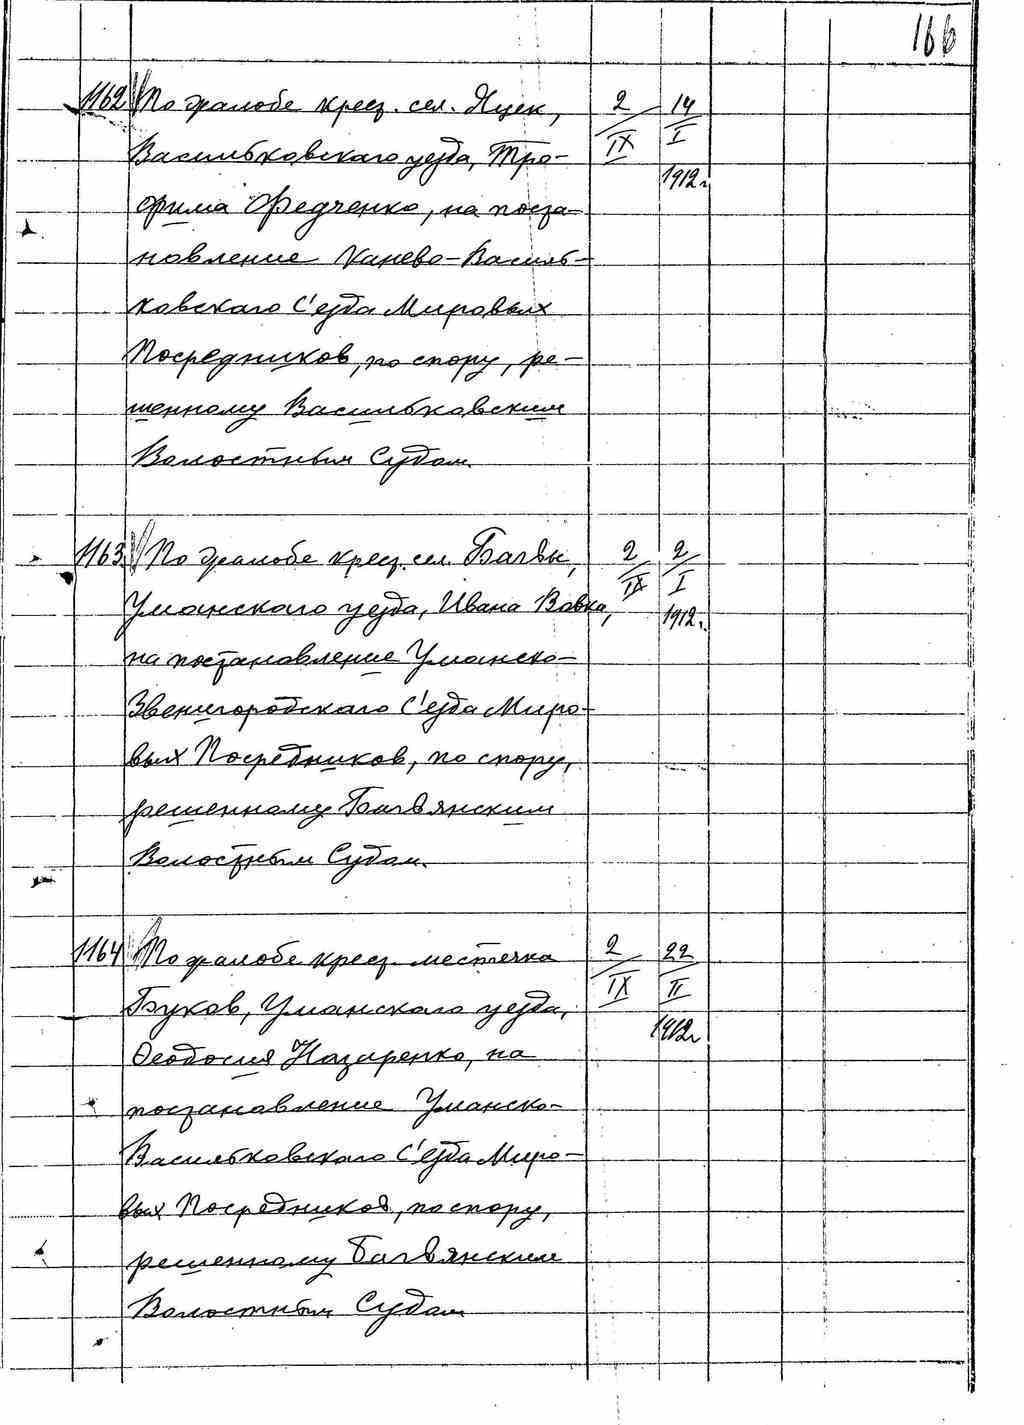 166
1162 По жалобе крест. сел. Яцек, 2/IX 14/I
Васильковскаго уезда, Тро- 1912 г.
фима Федченко, на поста-
новление Канево-Василь-
ковскаго С'езда Мировых
Посредников, по спору, ре-
шенному Васильковским
Волостным Судом.
1163 По жалобе крест. сел. Багвы, 2/IX 2/I
Уманскаго уезда, Ивана Вовка, 1912 г.
на постановление Уманско-
Звенигородскаго С'езда Миро-
вых Посредников, по спору,
решенному Багвянским
Волостным Судом.
1164 По жалобе крест. местечка 2/IX 22/II
Буков, Уманскаго уезда, 1912 г.
Феодосия Назаренко, на
постановление Уманско-
Васильковскаго С'езда Миро-
вых Посредников, по спору,
решенному Багвянским
Волостным Судом